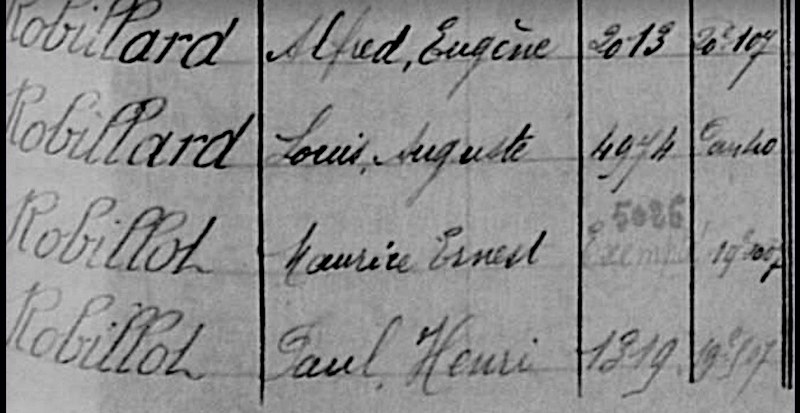 Robillard Alfred, Eugène 2013 20e 107
Robillard Louis, Auguste 4974
5086
Robillot Maurice Ernest Exempt
Robillot Paul, Henri 1319